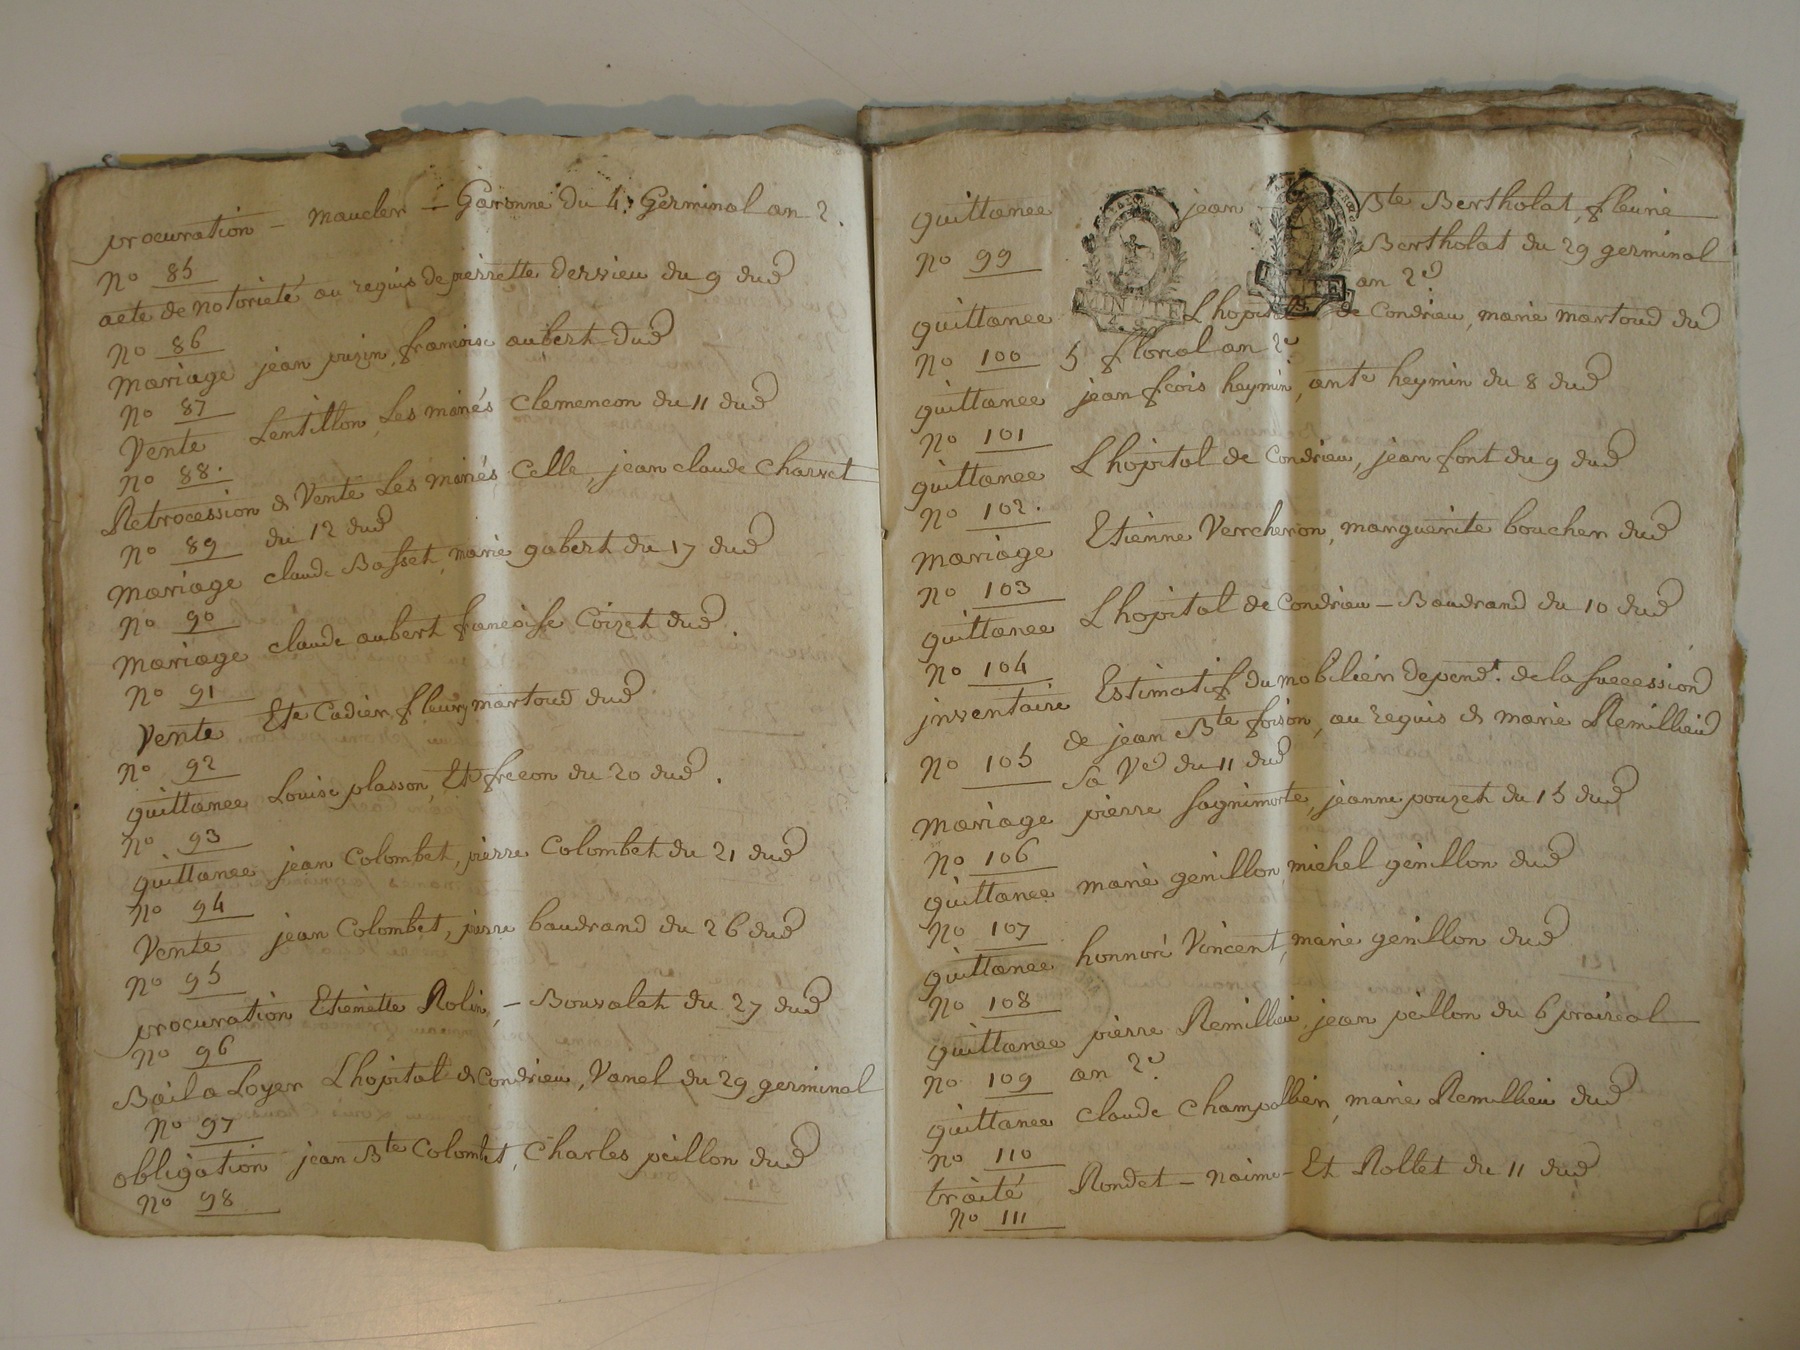 procuration – maucler – Garonne du 4. Germinal an 2.
No 85
acte de notorieté au requis de pierrette dervieu du 9 dud
No 86
mariage jean puzin, francoise aubert dud
No 87
Vente Lentillon, Les mariés Clemencon du 11 dud
No 88.
Retrocession & Vente Les mariés Celle, jean claude Charvet
No 89 du 12 dud
mariage claude Basset, marie gabert du 17 dud
No 90
mariage claude aubert francoise Coizet dud.
No 91
Vente Ete Cadier, fleury martoud dud
No 92
quittance Louise plasson, Ete frecon du 20 dud.
No 93
quittance jean Colombet, pierre Colombet du 21 dud
No 94
Vente jean Colombet, pierre baudrand du 26 dud
No 95
procuration Etienette Rolin, – Bouvalet du 27 dud
No 96
Bail a Loyer Lhopital de Condrieu, Vanel du 29 germinal
No 97
obligation jean Bte Colombet, Charles peillon dud
No 98
quittance jean Bte Bertholat, fleurie
No 99 Bertholat du 29 germinal
an 2e
MINUTE
quittance Lhopital de Condrieu, marie martoud du
No 100 5 floreal an 2e
quittance jean fcois heymin, ante heymin du 8 dud
No 101
quittance Lhopital de Condrieu, jean font du 9 dud
No 102.
mariage Etienne Vercheron, marguerite boucher dud
No 103
quittance Lhopital de Condrieu – Baudrand du 10 dud
No 104
inventaire Estimatif du mobilier depend.t de la succession
de jean Bte foison, au requis de marie Remillieu
No 105 sa Ve du 11 dud
mariage pierre sagnimorte, jeanne pouzet du 15 dud
No 106
quittance marie genillon, michel genillon dud
No 107
quittance honnoré Vincent, marie genillon dud
No 108
quittance pierre Remillieu, jean peillon du 6 prairial
No 109 an 2e
quittance claude Champallier, marie Remillieu dud
No 110
traité Rondet – naime – Et Rollet du 11 dud
No 111